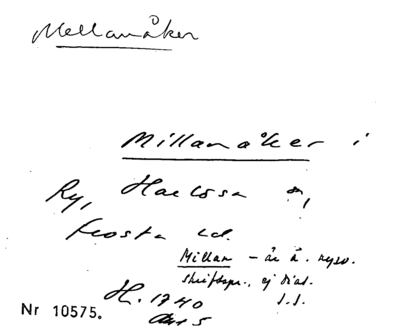 Mellanåker
Millanåker i
Ry, Harlösa sn,
Frosta hd.
Millan – är å. nyso.
skriftspr., ej dial.
H. 1740
Nr 10575.